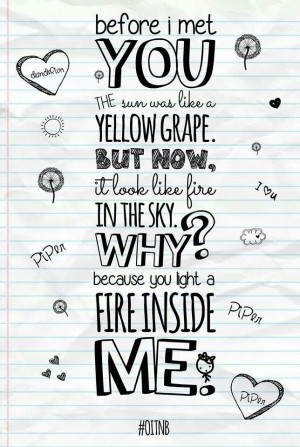 before i met
YOU
THE sun was like a
YELLOW GRAPE.
BUT NOW,
it look like fire
IN THE SKY.
WHY?
because you light a
FIRE INSIDE
ME.
dandelion
I ♥ u
PiPer
PiPer
PiPer
#OITNB